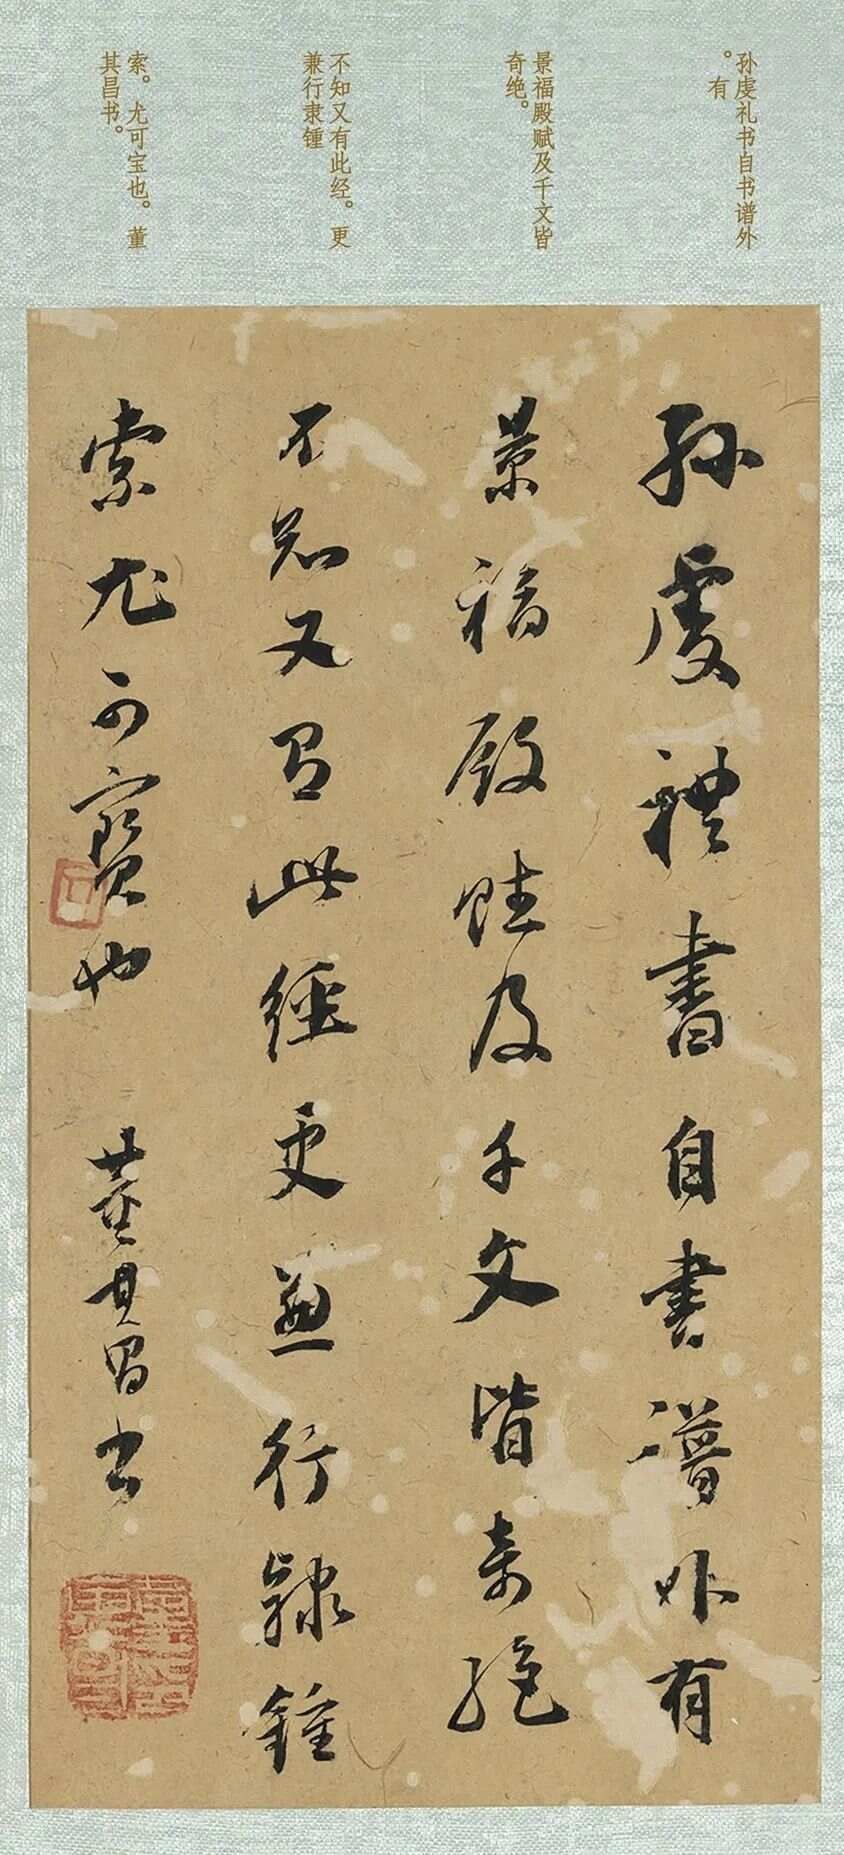 孙虔礼书自书谱外
。有
景福殿赋及千文皆
奇绝。
不知又有此经。更
兼行隶锺
索。尤可宝也。董
其昌书。
孙虔禮書自書譜外有
景福殿賦及千文皆奇絶
不知又有此經更兼行隷鍾
索尤可寳也 董其昌書